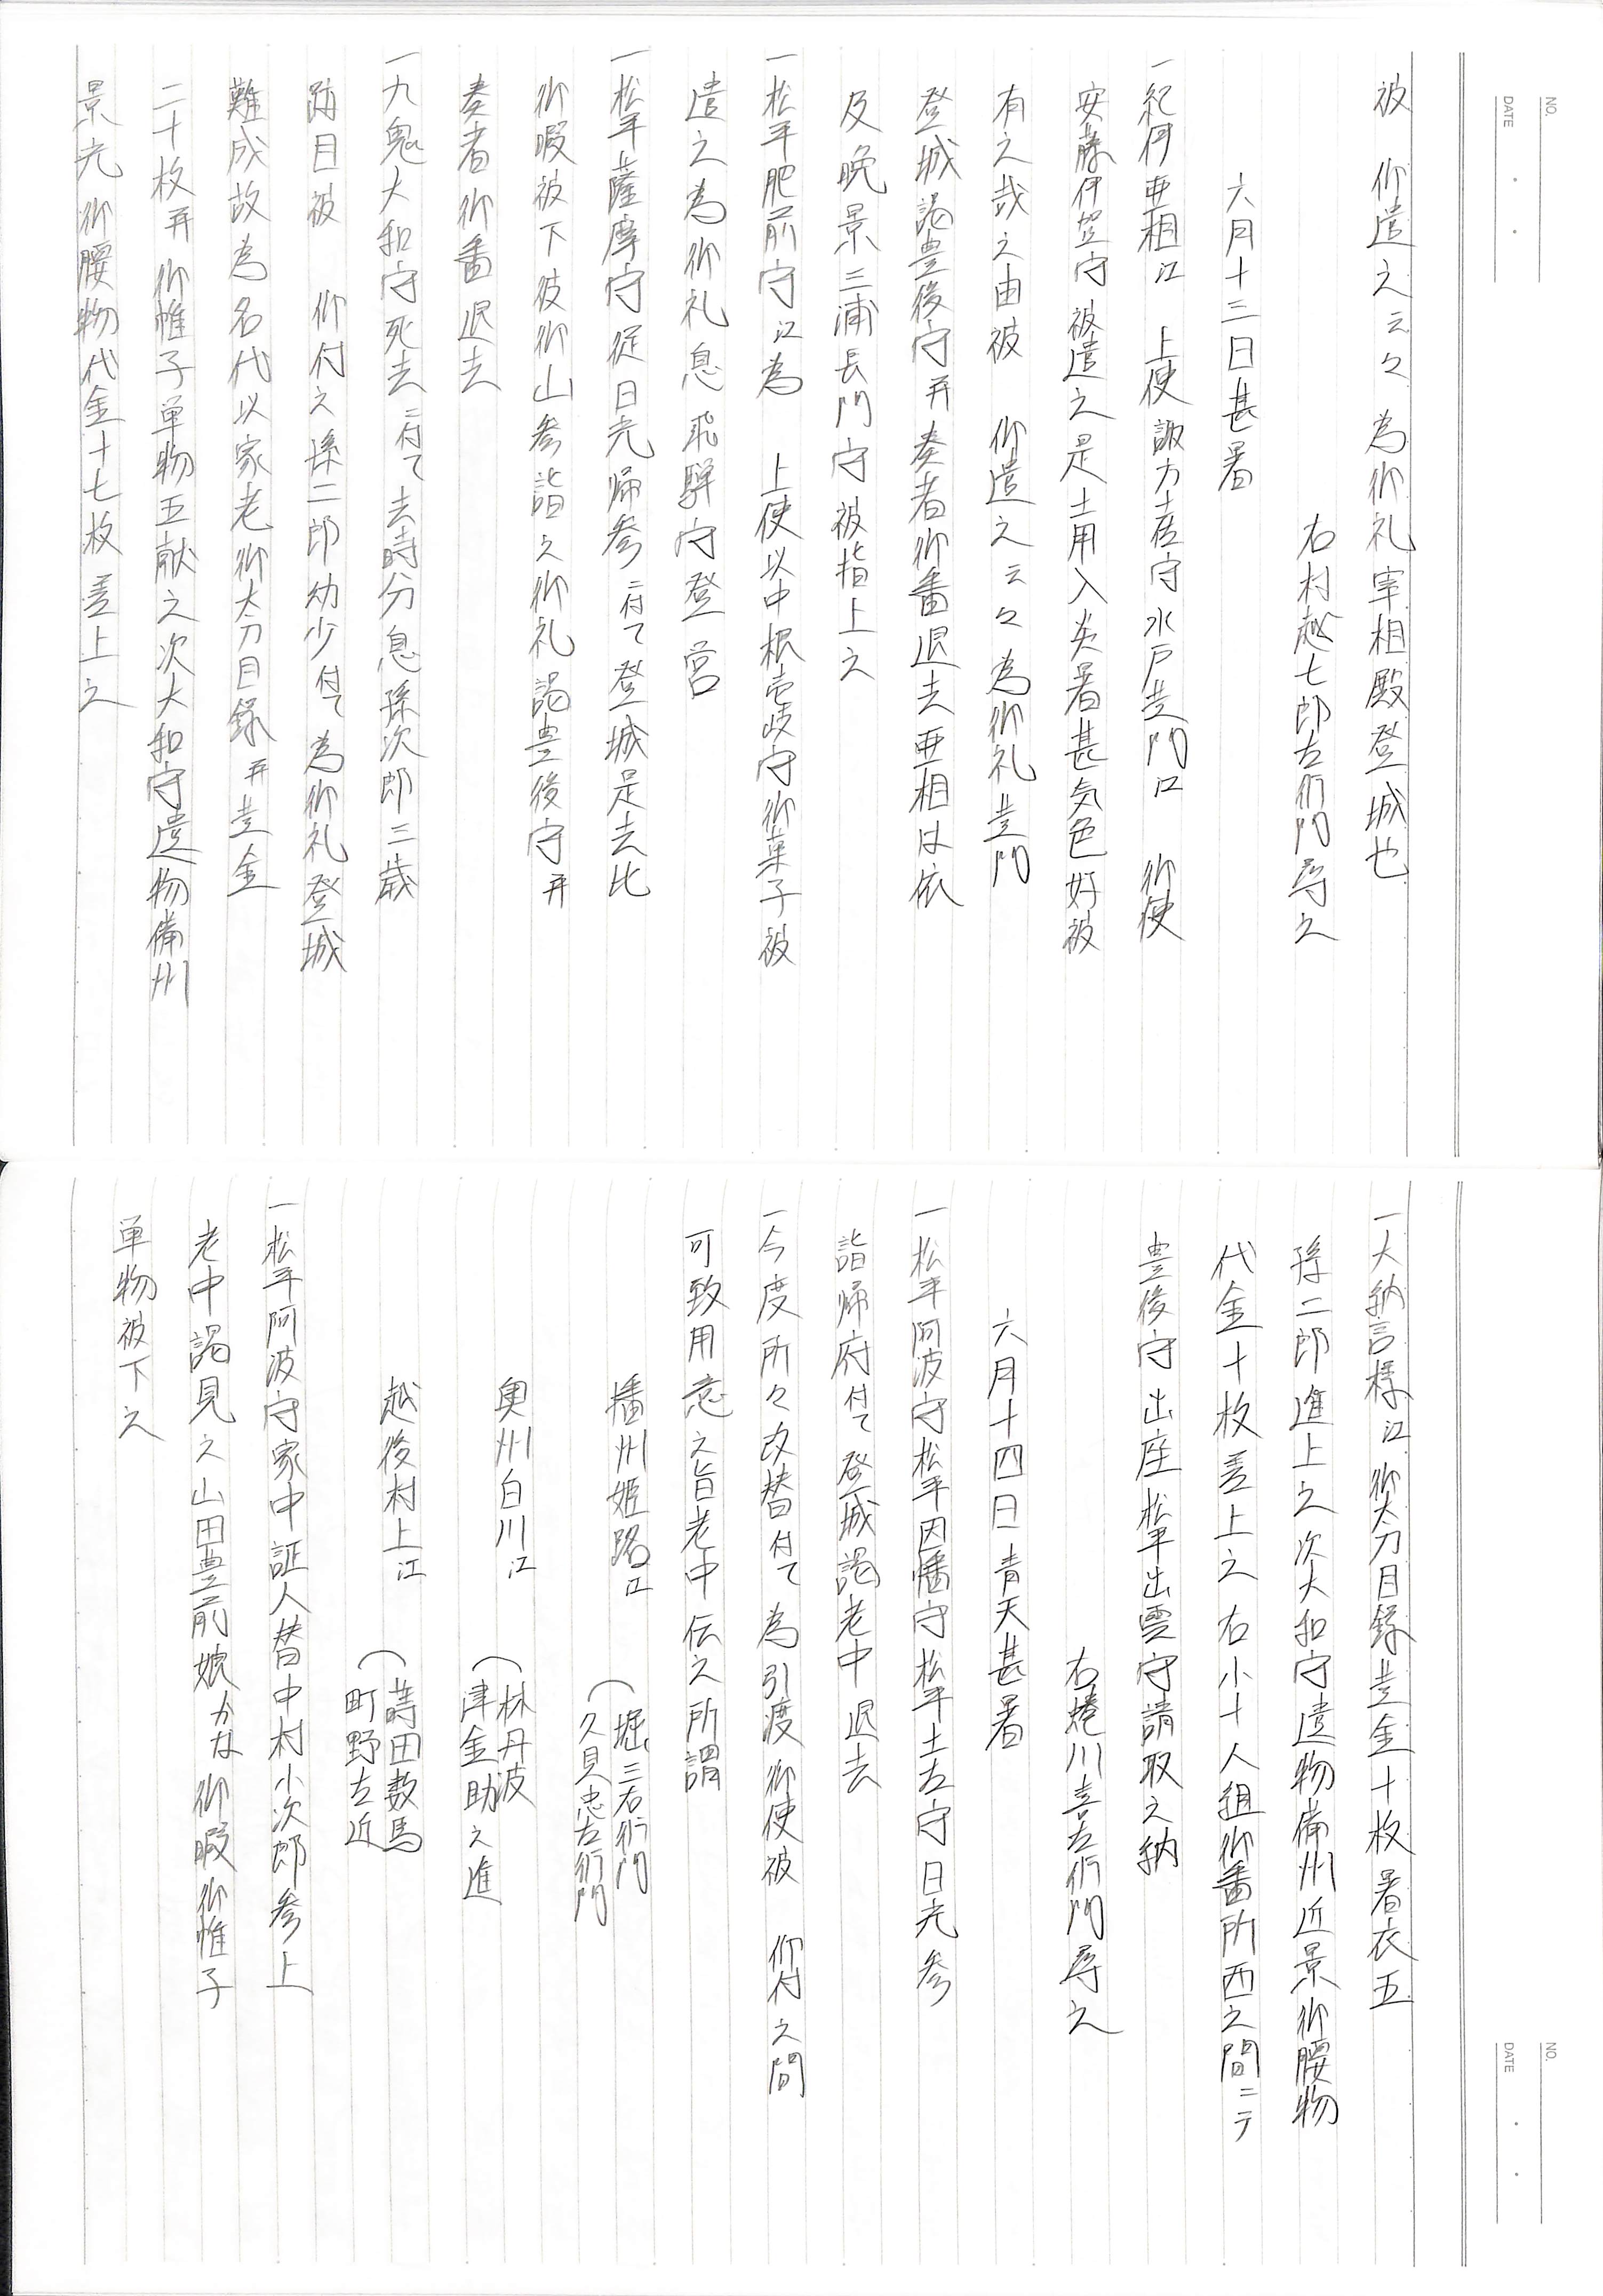 被　仰遣之云々　為御礼宰相殿登城也
右村越七郎左衛門尋之
六月十三日甚暑
一紀伊亜相江　上使諏方土佐守水戸黄門江　御使
安藤伊賀守被遣之是土用入炎暑甚気色好被
有之哉之由被　仰遣之云々為御礼黄門
登城謁豊後守并奏者御番退去亜相は依
及晩景三浦長門守被指上之
一松平肥前守江為　上使以中根壱岐守御菓子被
遣之為御礼息飛騨守登営
一松平薩摩守従日光帰参ニ付て登城是去比
御暇被下彼御山参詣之御礼謁豊後守并
奏者御番退去
一九鬼大和守死去ニ付て去時分息孫次郎三歳
跡目被　仰付之孫二郎幼少付て為御礼登城
難成故為名代以家老御太刀目録并黄金
二十枚并御帷子単物五献之次大和守遺物備州
景光御腰物代金十七枚差上之
NO.
DATE
一大納言様江御太刀目録黄金十枚暑衣五
孫二郎進上之次大和守遺物備州近景御腰物
代金十枚差上之右小十人組御番所西之間ニテ
豊後守出座松平出雲守請取之納
右蜷川喜左衛門尋之
六月十四日青天甚暑
一松平阿波守松平因幡守松平土左守日光参
詣帰府付て登城謁老中退去
一今度所々改替付て為引渡御使被　仰付之間
可致用意之旨老中伝之所謂
播州姫路江　（堀三右衛門
久貝忠左衛門
奥州白川江　（林丹波
津金助之進
越後村上江　（蒔田数馬
町野左近
一松平阿波守家中証人替中村小次郎参上
老中謁見之山田豊前娘かな御暇御帷子
単物被下之
NO.
DATE